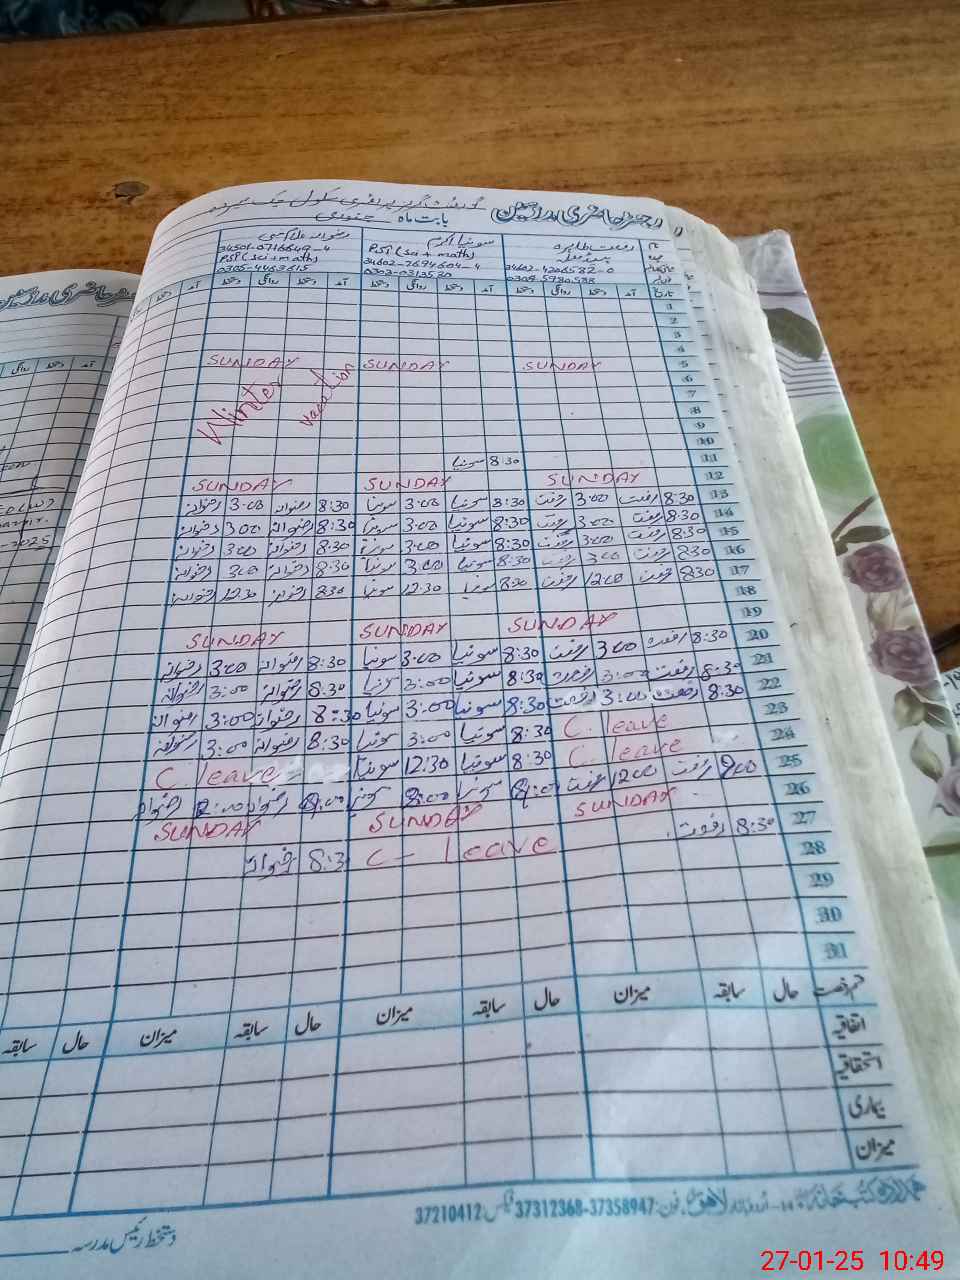 رجسٹر حاضری مدرسین گورنمنٹ گرلز پرائمری سکول چک
بابت ماہ جنوری
رفعت طاہرہ سونیا اکرم رضوانہ
PST (Sci + maths)
34602-7694604-4
34501-0716649-4
PST (Sci + maths)
0305-4463615
تاریخ آمد دستخط روانگی دستخط آمد دستخط روانگی دستخط آمد دستخط روانگی دستخط
1
2
3
4
5 SUNDAY SUNDAY SUNDAY
6 Winter vacation
7
8
9
10
11 8:30 سونیا
12 SUNDAY SUNDAY SUNDAY
13 8:30 رفعت 3:00 رفعت 8:30 سونیا 3:00 سونیا 8:30 رضوانہ 3:00 رضوانہ
14 8:30 رفعت 3:00 رفعت 8:30 سونیا 3:00 سونیا 8:30 رضوانہ 3:00 رضوانہ
15 8:30 رفعت 3:00 رفعت 8:30 سونیا 3:00 سونیا 8:30 رضوانہ 3:00 رضوانہ
16 8:30 رفعت 3:00 رفعت 8:30 سونیا 3:00 سونیا 8:30 رضوانہ 3:00 رضوانہ
17 8:30 رفعت 12:00 رفعت 8:30 سونیا 12:30 سونیا 8:30 رضوانہ 12:30 رضوانہ
18
19 SUNDAY SUNDAY SUNDAY
20 8:30 رفعت 3:00 رفعت 8:30 سونیا 3:00 سونیا 8:30 رضوانہ 3:00 رضوانہ
21 8:30 رفعت 3:00 رفعت 8:30 سونیا 3:00 سونیا 8:30 رضوانہ 3:00 رضوانہ
22 8:30 رفعت 3:00 رفعت 8:30 سونیا 3:00 سونیا 8:30 رضوانہ 3:00 رضوانہ
23 C. leave 8:30 سونیا 3:00 سونیا 8:30 رضوانہ 3:00 رضوانہ
24 C. leave 8:30 سونیا 12:30 سونیا C. leave
25 9:00 رفعت 12:00 رفعت سونیا سونیا رضوانہ رضوانہ
26 SUNDAY SUNDAY SUNDAY
27 8:30 رفعت C- leave 8:3 رضوانہ
28
29
30
31
قسم رخصت حال سابقہ میزان حال سابقہ میزان حال سابقہ میزان حال سابقہ
اتفاقیہ
استحقاقیہ
بیماری
میزان
اردو بازار لاہور فون: 37358947-37312368 فیکس: 37210412
دستخط رئیس مدرسہ
27-01-25 10:49